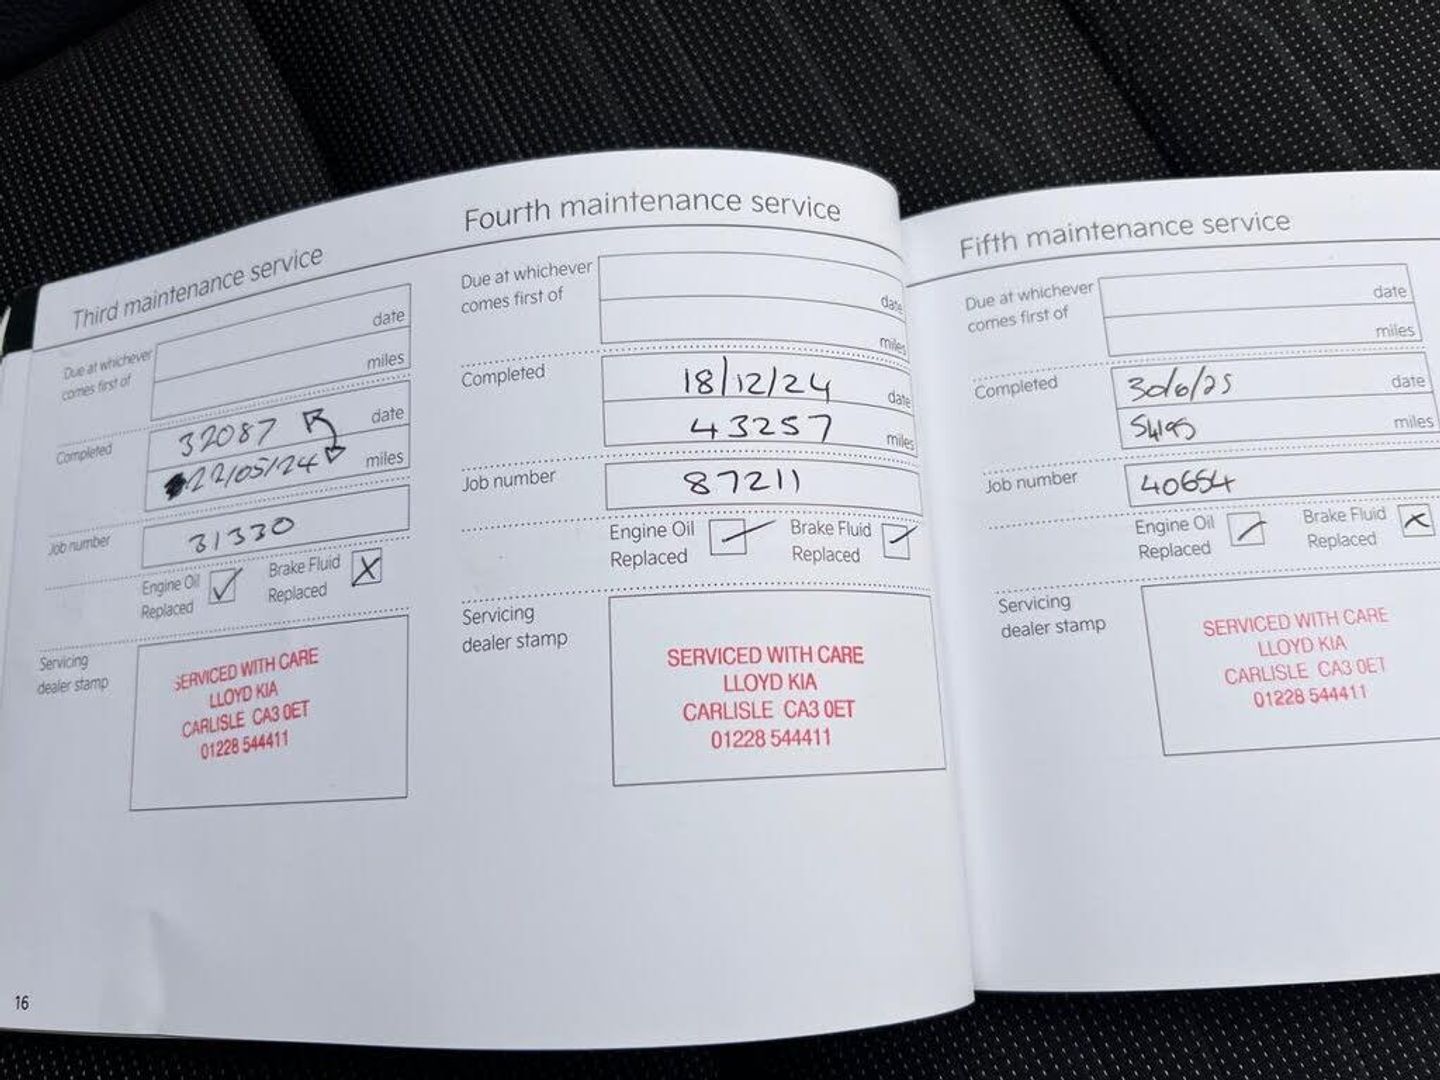 Third maintenance service
Due at whichever
comes first of
date
miles
Completed
32087
date
22/05/24
miles
Job number
31330
Engine Oil
Replaced
Brake Fluid
Replaced
Servicing
dealer stamp
SERVICED WITH CARE
LLOYD KIA
CARLISLE CA3 0ET
01228 544411
16
Fourth maintenance service
Due at whichever
comes first of
date
miles
Completed
18/12/24
date
43257
miles
Job number
87211
Engine Oil
Replaced
Brake Fluid
Replaced
Servicing
dealer stamp
SERVICED WITH CARE
LLOYD KIA
CARLISLE CA3 0ET
01228 544411
Fifth maintenance service
Due at whichever
comes first of
date
miles
Completed
30/6/25
date
miles
Job number
40654
Engine Oil
Replaced
Brake Fluid
Replaced
Servicing
dealer stamp
SERVICED WITH CARE
LLOYD KIA
CARLISLE CA3 0ET
01228 544411